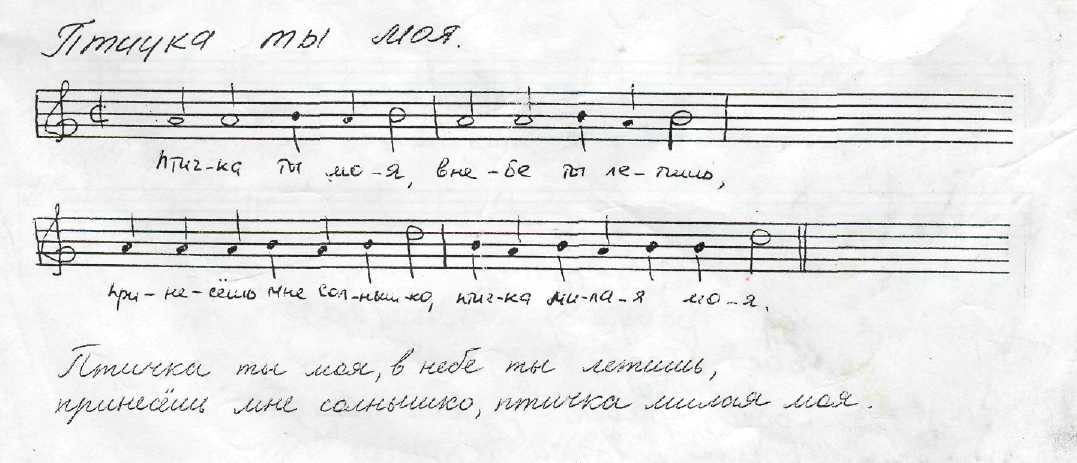 Птичка ты моя.
Птич-ка ты мо-я, в не-бе ты ле-тишь,
При-не-сёшь мне сол-ныш-ко, птич-ка ми-ла-я мо-я.
Птичка ты моя, в небе ты летишь,
принесёшь мне солнышко, птичка милая моя.